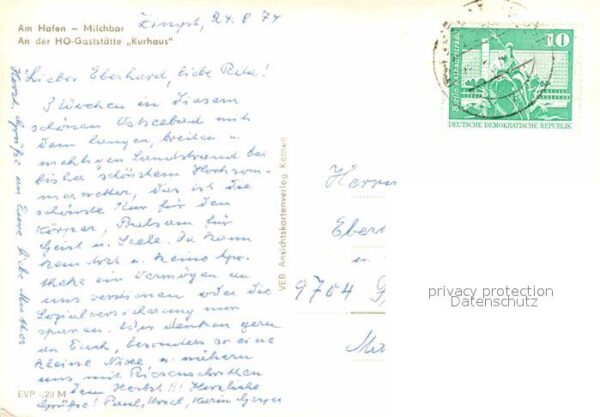 Am Hafen – Milchbar
An der HO-Gaststätte „Kurhaus"
Zingst, 24.8.74
Lieber Eberhard, liebe Rita!
3 Wochen in diesem
schönen Ostseebad mit
dem langen, breiten u.
Sandstrand bei
bisher schönstem Hochsom-
merwetter, das ist die
schönste Kur für den
Körper, Balsam für
Geist u. Seele. Da kann
kein Arzt u. keine Apo-
theke ein Vermögen an
uns verdienen oder die
Sozialversicherung nur
sparen. Wir denken gern
an Euch, besonders so eine
kleine u. nähern
uns mit Riesenschritten
dem Herbst!!! Herzliche
Grüße! Paul, Karin
Herzl. Grüße an Eure liebe Mutter
VEB Ansichtskartenverlag Köthen
EVP -,20 M
10
DEUTSCHE DEMOKRATISCHE REPUBLIK
Herrn
Eber
u.
9704
privacy protection
Datenschutz